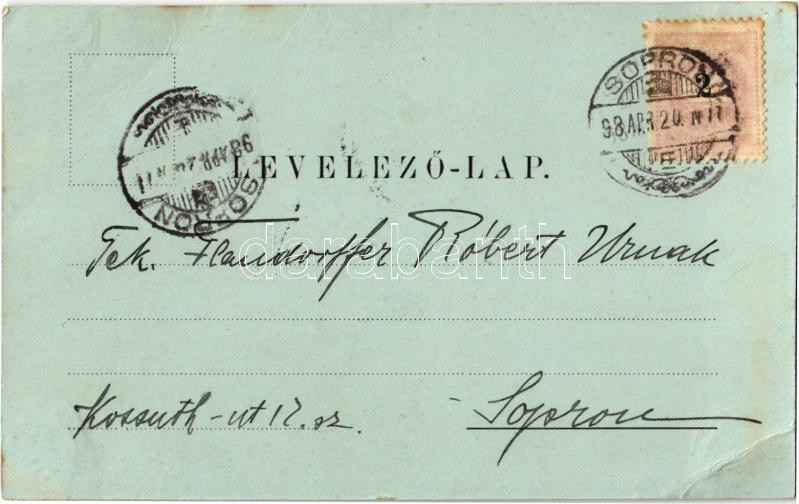 2
SOPRON
98 APR. 20. N 11
SOPRON
98 APR. 20. N 11
LEVELEZŐ-LAP.
Tek. Flandorffer Róbert Urnak
darabanth
Kossuth-ut 12. sz. Sopron